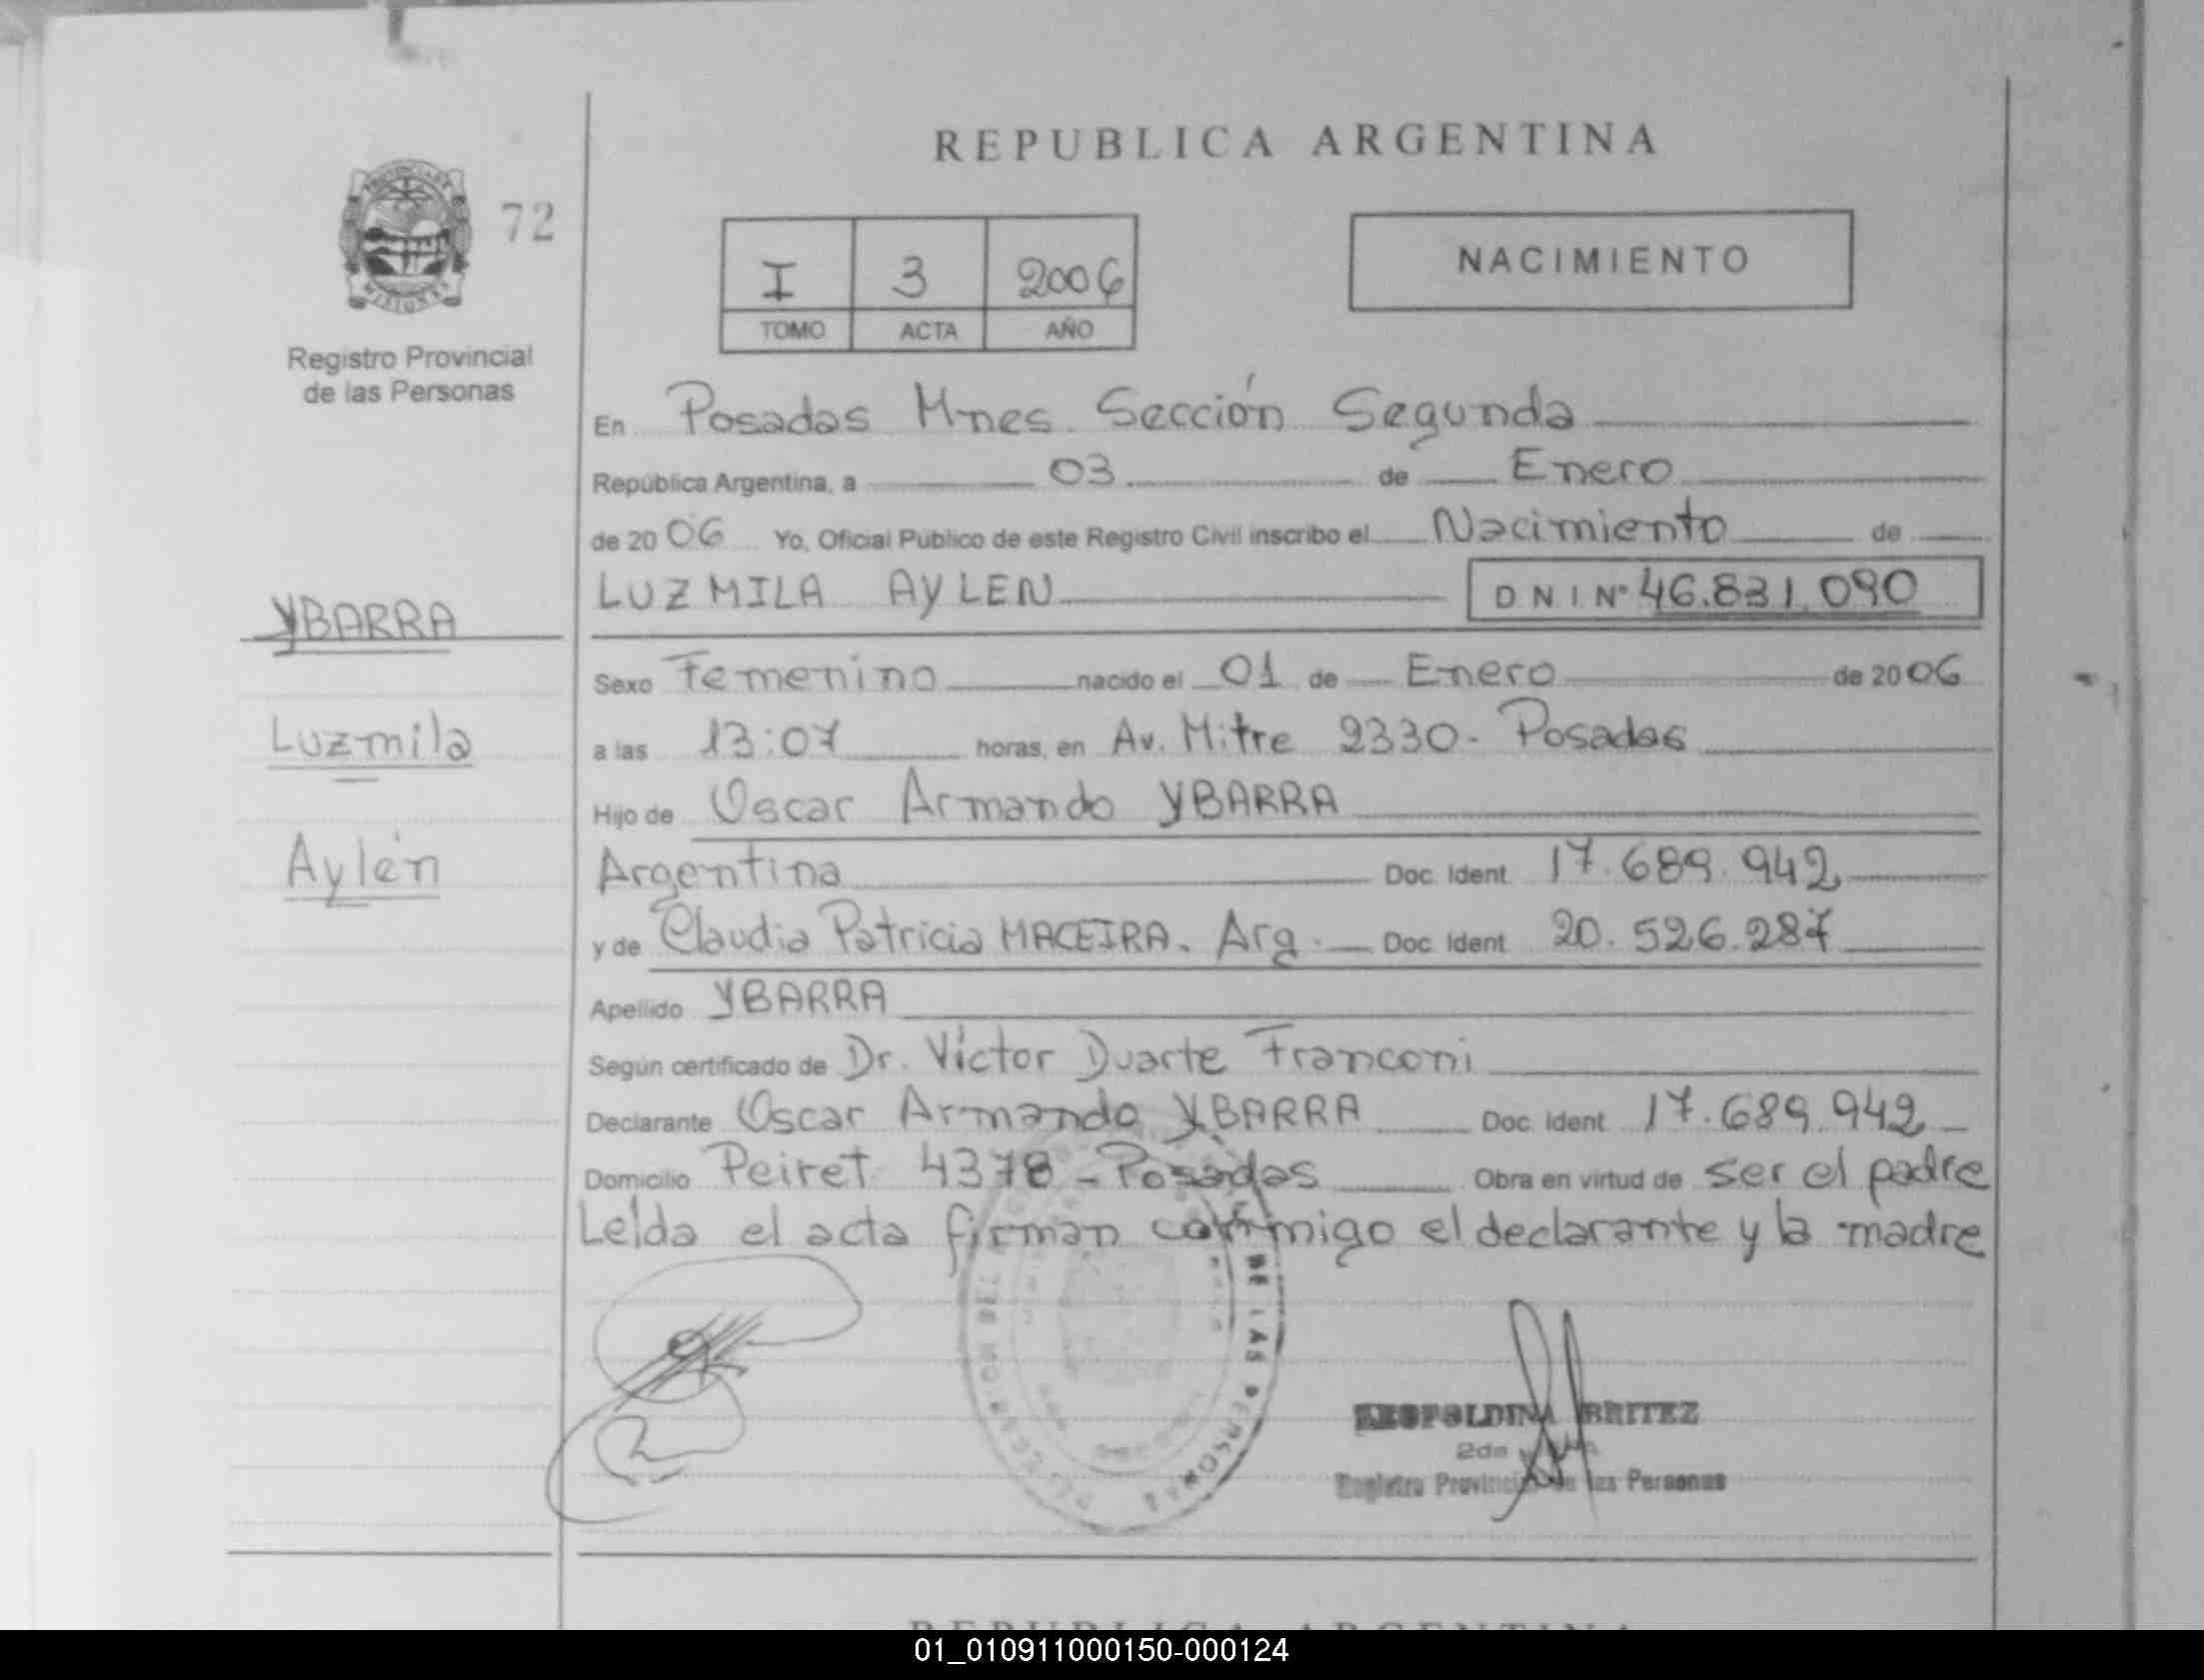 REPUBLICA ARGENTINA
PROVINCIA DE
MISIONES
72
Registro Provincial
de las Personas
I 3 2006
TOMO ACTA AÑO
NACIMIENTO
En Posadas Mnes. Sección Segunda
República Argentina, a 03 de Enero
de 2006 Yo, Oficial Público de este Registro Civil inscribo el Nacimiento de
LUZMILA AYLEN DNI Nº 46.831.090
YBARRA
Luzmila
Aylén
Sexo Femenino nacido el 01 de Enero de 2006
a las 13:07 horas, en Av. Mitre 2330- Posadas
Hijo de Oscar Armando YBARRA
Argentina Doc. Ident 17.689.942
y de Claudia Patricia MACEIRA. Arg. Doc. Ident 20.526.287
Apellido YBARRA
Según certificado de Dr. Víctor Duarte Franconi
Declarante Oscar Armando YBARRA Doc. Ident 17.689.942
Domicilio Peiret 4378 - Posadas Obra en virtud de ser el padre
Leída el acta firman conmigo el declarante y la madre
DE LAS PERSONAS
LEOPOLDINA BRITEZ
2da
Registro Provincial de las Personas
REPUBLICA ARGENTINA
01_010911000150-000124